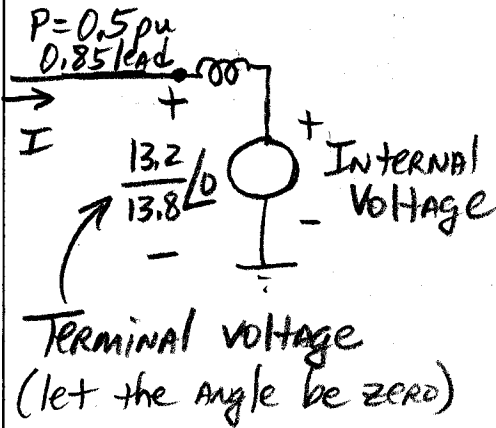 P=0.5pu
0.85 lead
I
+
13.2
13.8 ∠0
−
+
Internal
Voltage
−
Terminal voltage
(let the angle be zero)